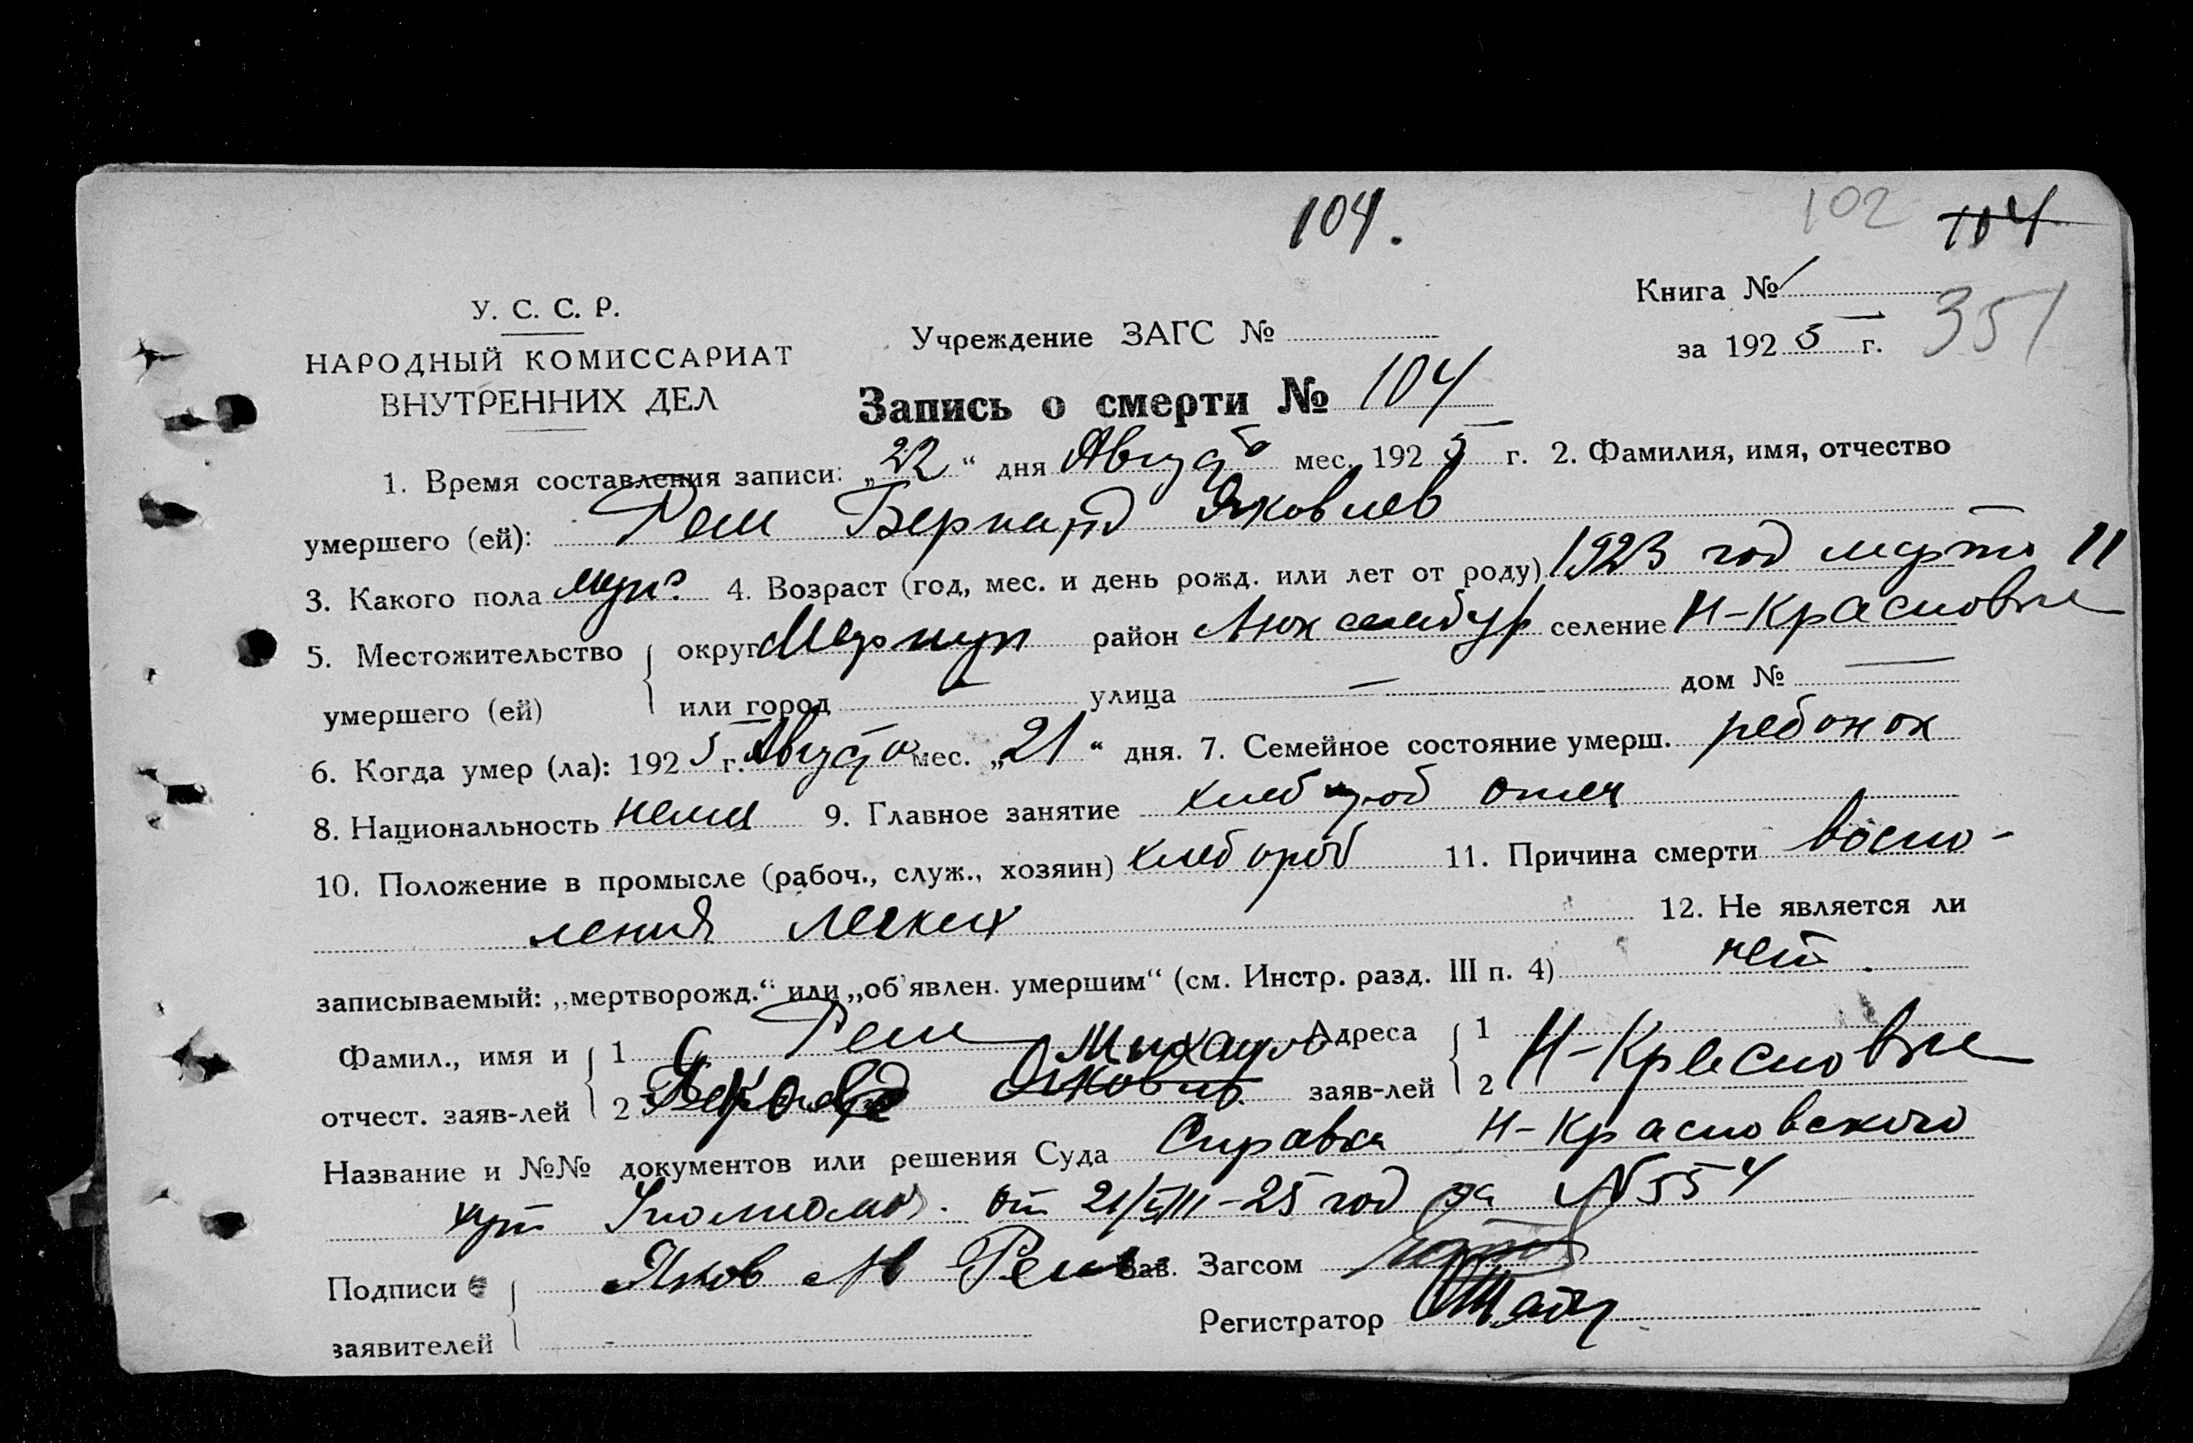 104.
102 104
Книга № 1
351
У. С. С. Р.
НАРОДНЫЙ КОМИССАРИАТ
ВНУТРЕННИХ ДЕЛ
Учреждение ЗАГС №
за 1925 г.
Запись о смерти № 104
1. Время составления записи: „22“ дня Августа мес. 1925 г. 2. Фамилия, имя, отчество
умершего (ей): Реш Бернард Яковлев
3. Какого пола муж. 4. Возраст (год, мес. и день рожд. или лет от роду) 1923 год марта 11
5. Местожительство округ Мариуп район Люксембур селение Н-Красновка
умершего (ей) или город — улица — дом № —
6. Когда умер (ла): 1925 г. Августа мес. „21“ дня. 7. Семейное состояние умерш. ребонок
8. Национальность немец 9. Главное занятие хлебороб отец
10. Положение в промысле (рабоч., служ., хозяин) хлебороб 11. Причина смерти воспо-
ления легких 12. Не является ли
записываемый: „мертворожд.“ или „об'явлен. умершим“ (см. Инстр. разд. III п. 4) нет.
Фамил., имя и 1 Реш Михайло Адреса 1 Н-Красновка
отчест. заяв-лей 2 Яков заяв-лей 2
Название и №№ документов или решения Суда Справка Н-Красновского
хут Уполномоч. от 21/VIII-25 год за №554
Подписи Яков М Реш Зав. Загсом
заявителей Регистратор